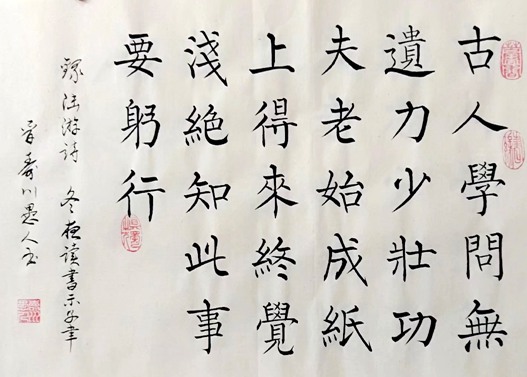 古人學問無
遺力少壯功
夫老始成紙
上得來終覺
淺絕知此事
要躬行
錄陸游詩 冬夜讀書示子聿
壽川愚人书